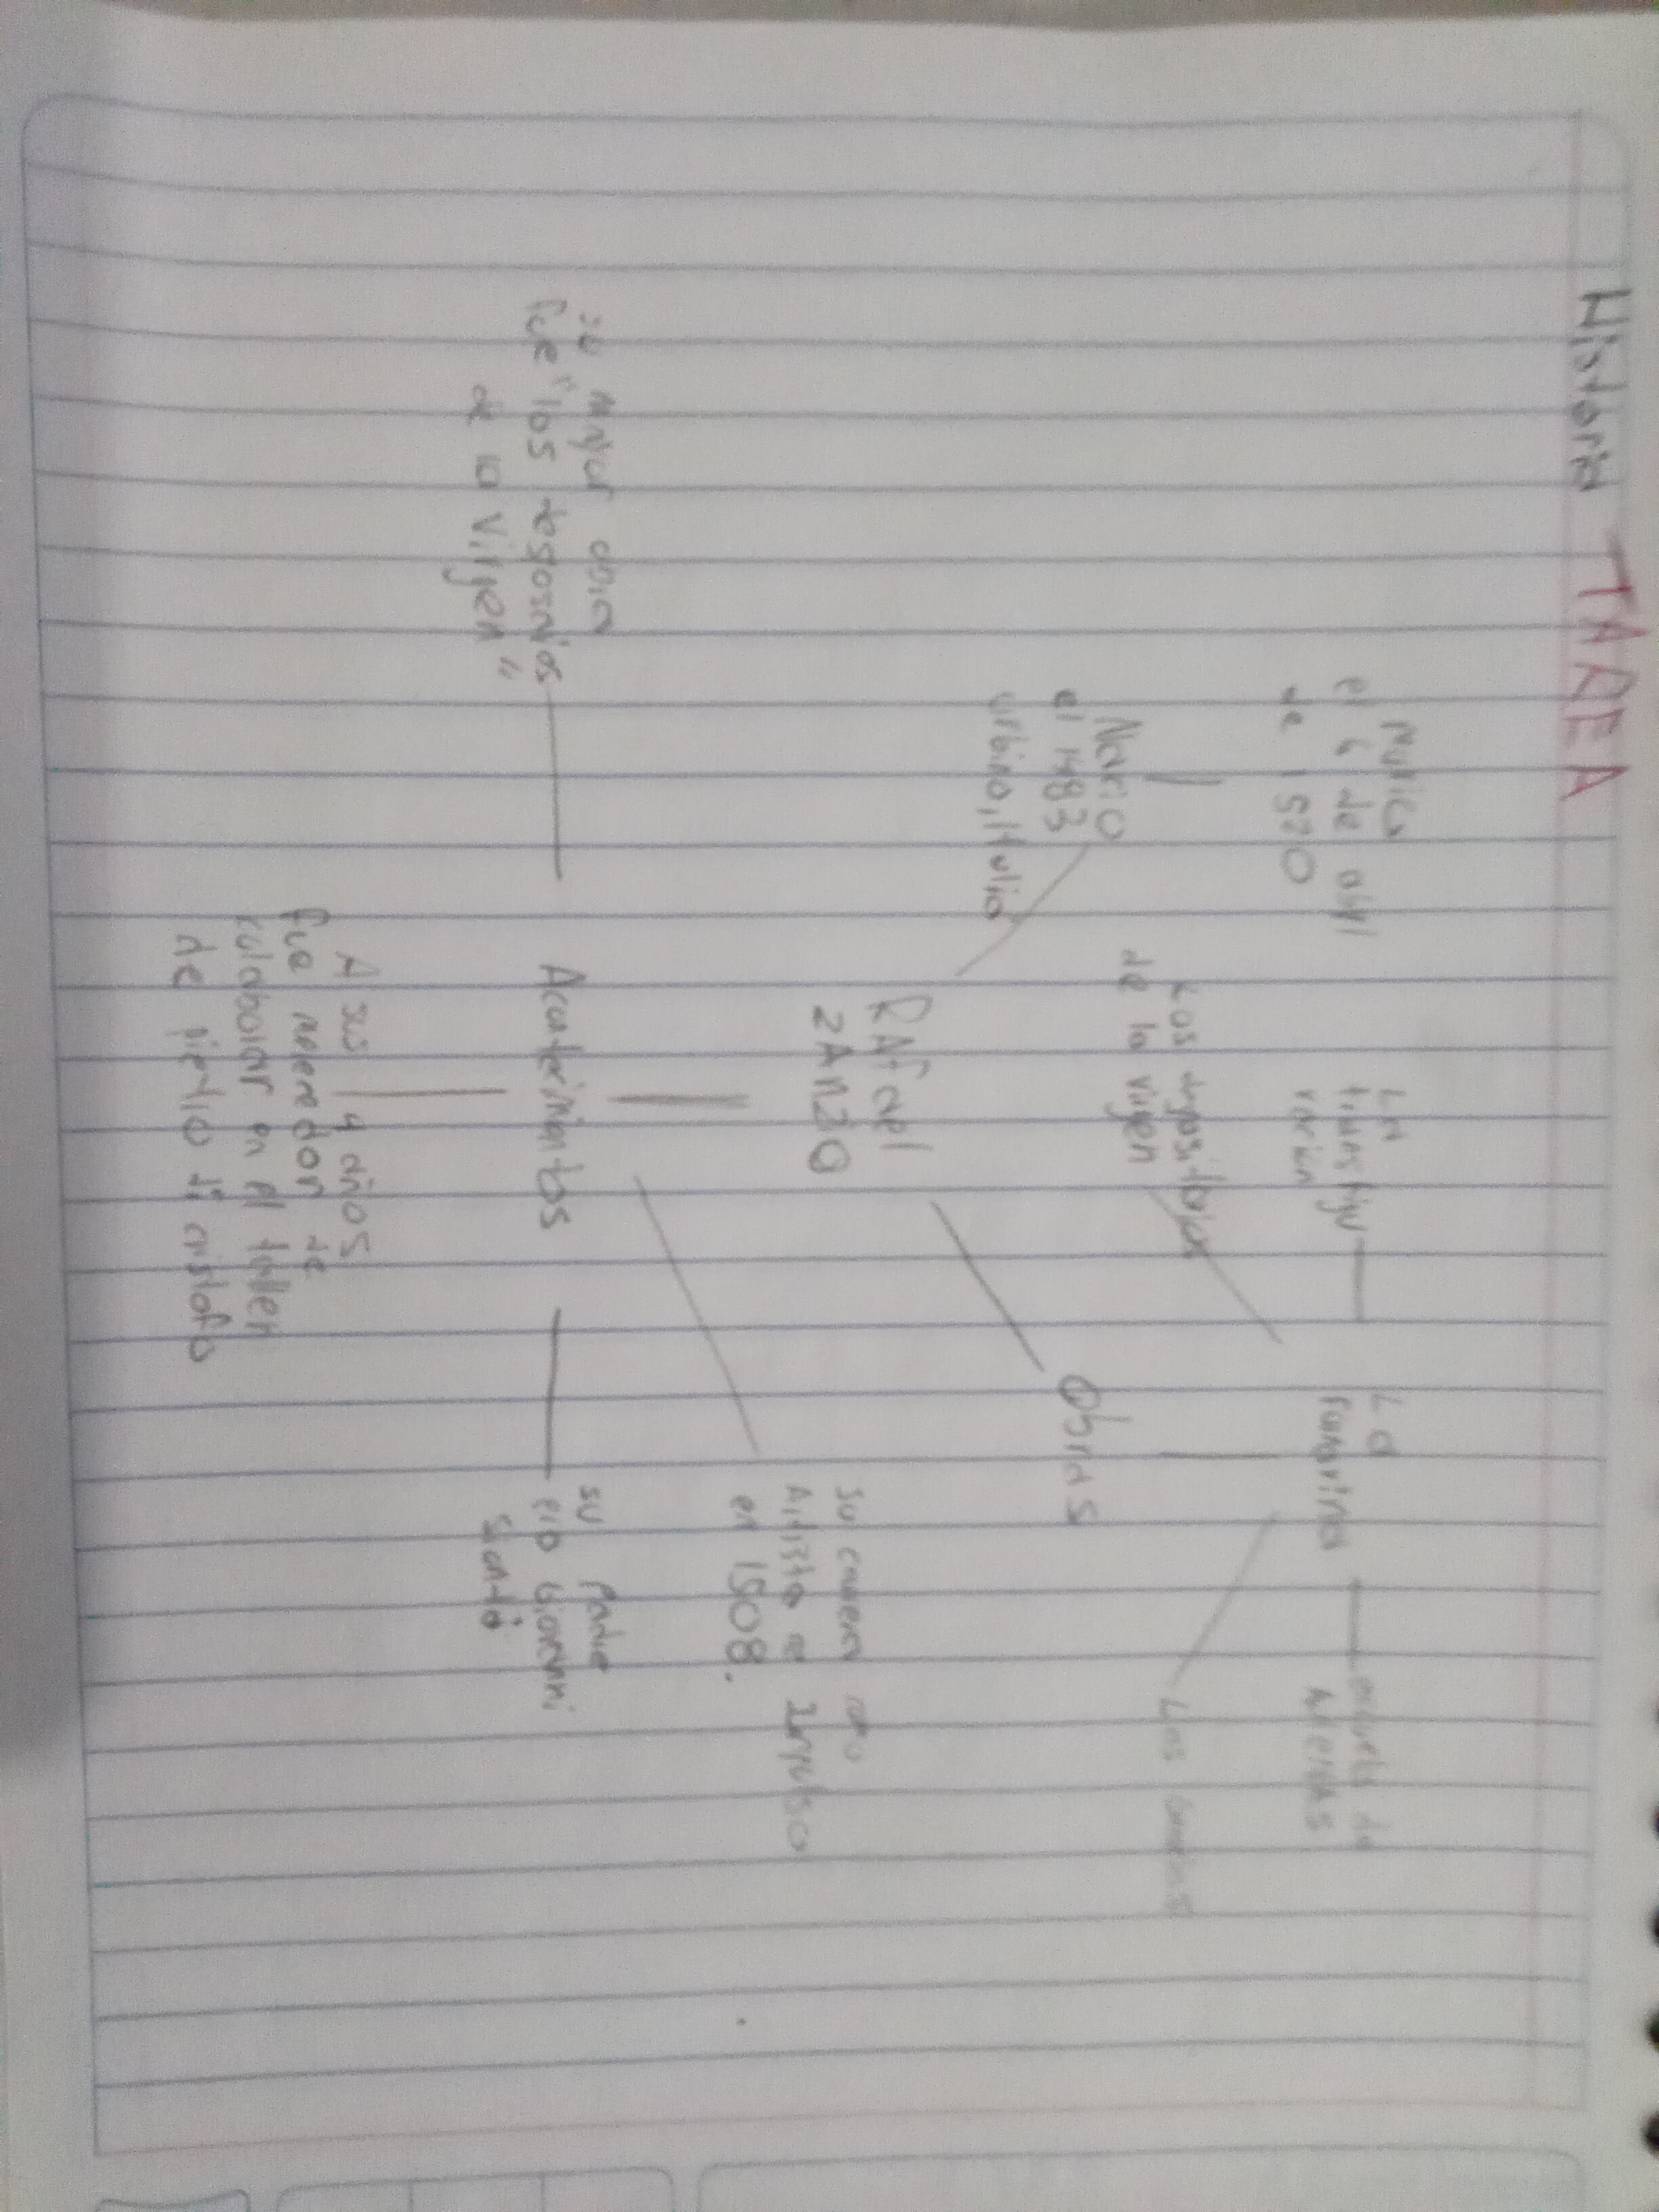 Historia TAREA
Murio
el 6 de abril
de 1520
Nacio
el 1483
urbino, Italia
La
transfigu
racion
La
Fornarina
escuela de
Atenas
Los desposi
de la virgen
Las
Obras
RAfael
ZANZIO
Su carrera como
Artista se Impulso
en 1508.
Su mayor obra
fue "los
de la Virgen"
su padre
era Giovanni
Santi
A sus 4 años
fue merecedor de
colaborar en el taller
de pietro di cristofo